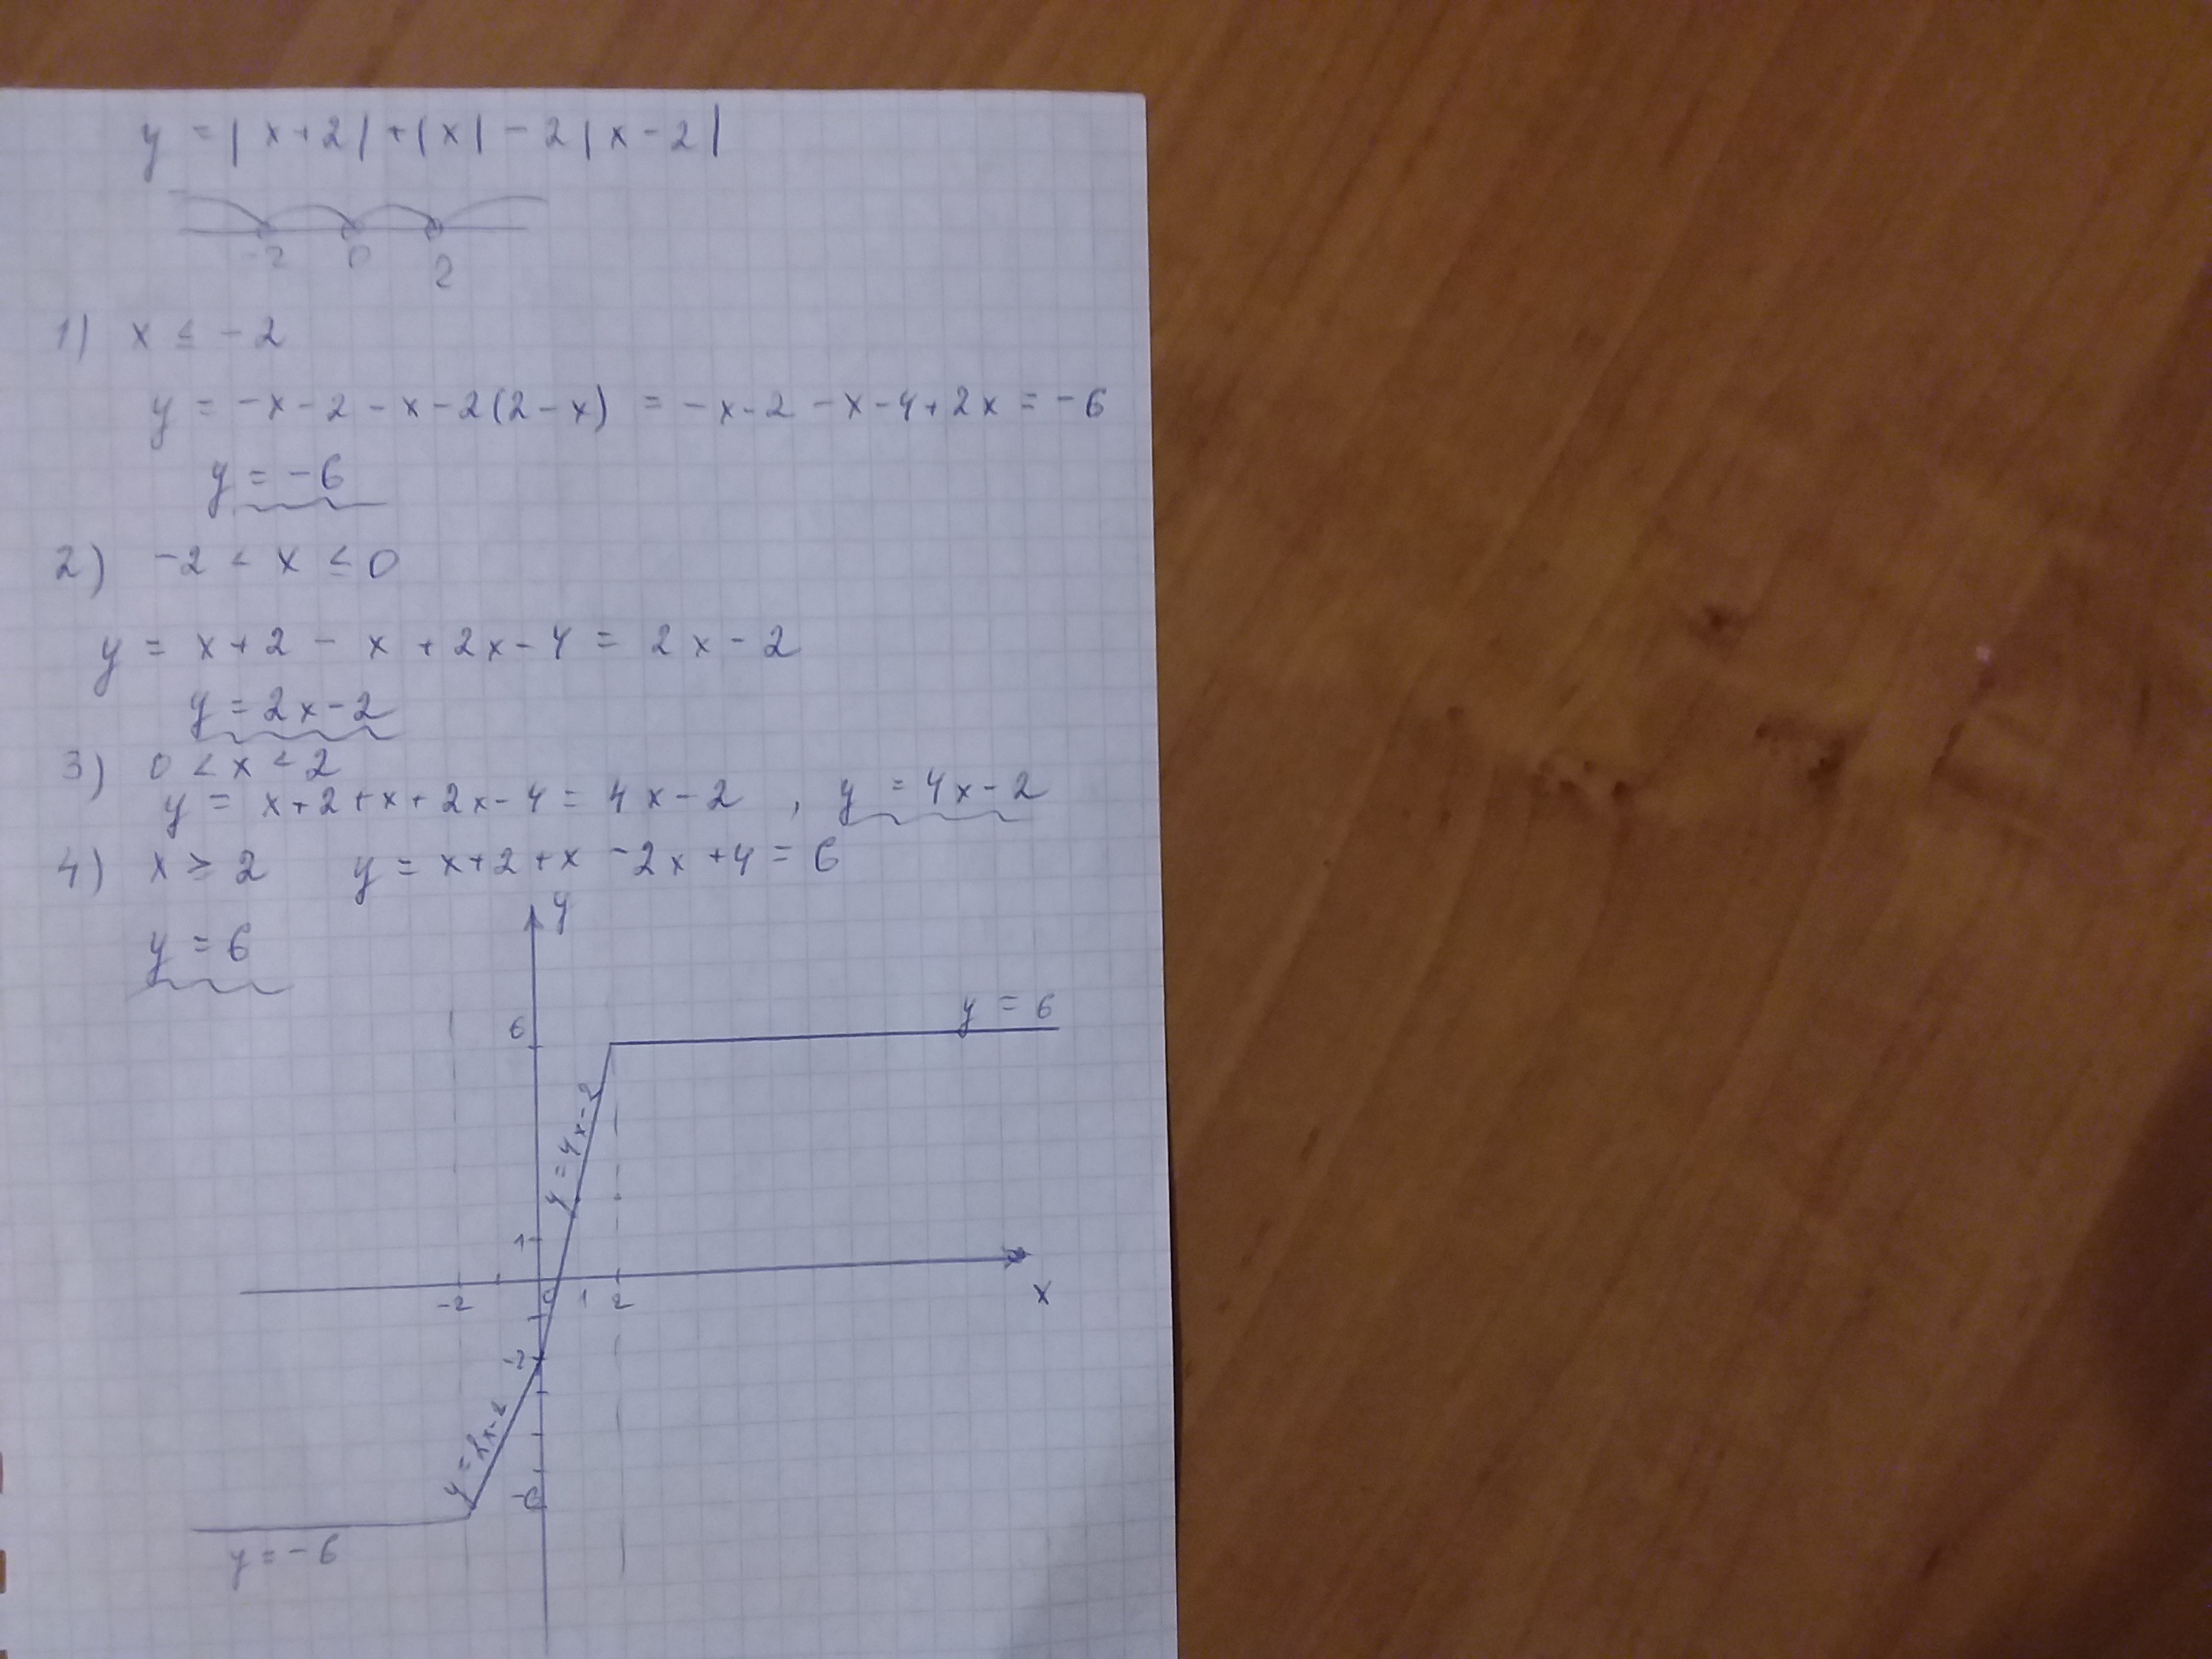 y = |x+2|+|x|-2|x-2|
-2 0 2
1) x ≤ -2
y = -x-2-x-2(2-x) = -x-2-x-4+2x = -6
y = -6
2) -2 < x ≤ 0
y = x+2-x+2x-4 = 2x-2
y = 2x-2
3) 0 < x < 2
y = x+2+x+2x-4 = 4x-2 , y = 4x-2
4) x ≥ 2 y = x+2+x-2x+4 = 6
y
y = 6
y = 6
6
y = 4x-2
1
-2 0 1 2 x
-2
y = 2x-2
-6
y = -6